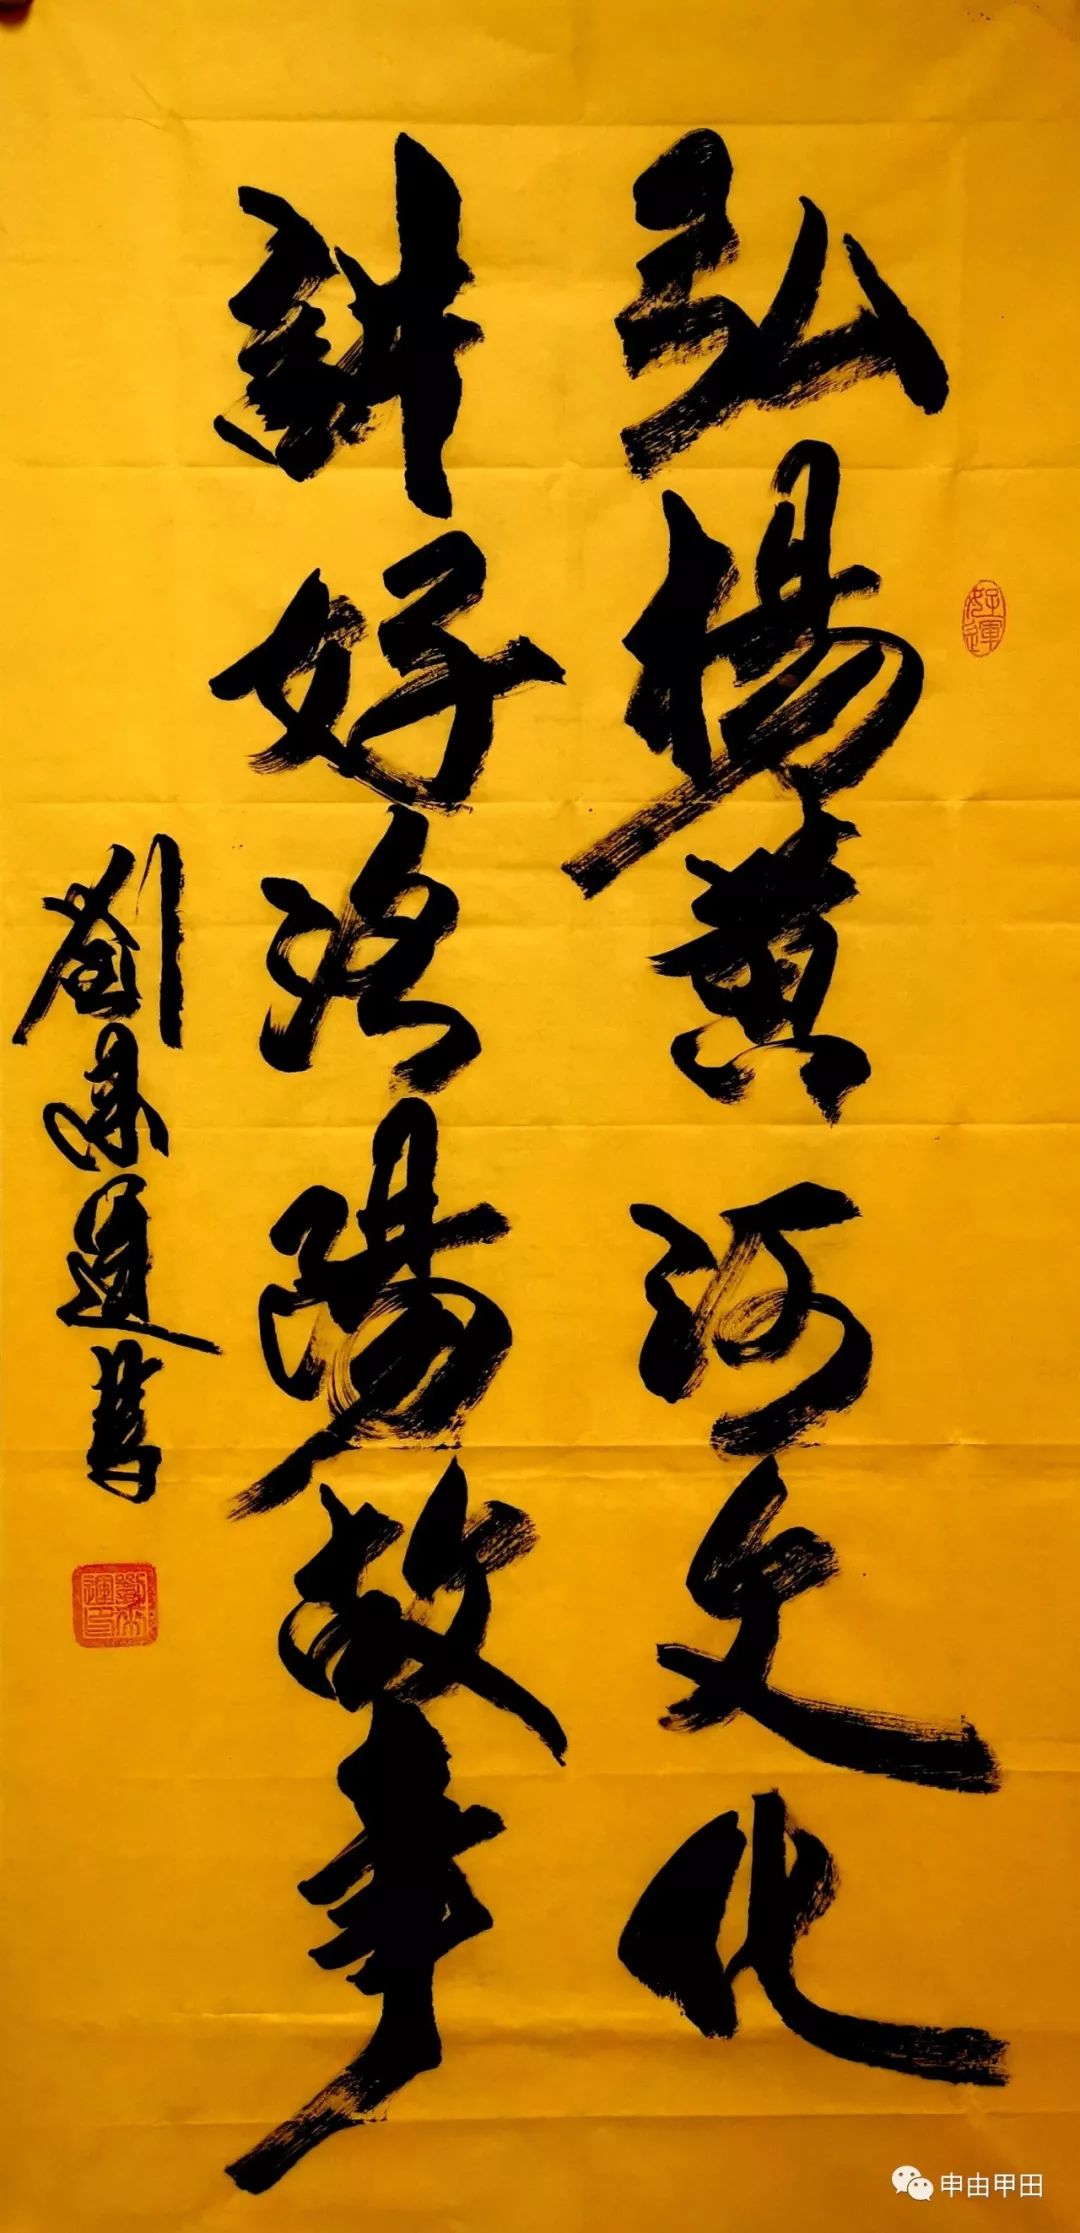 弘揚黄河文化
講好洛陽故事
劉 運書
好運
申由甲田